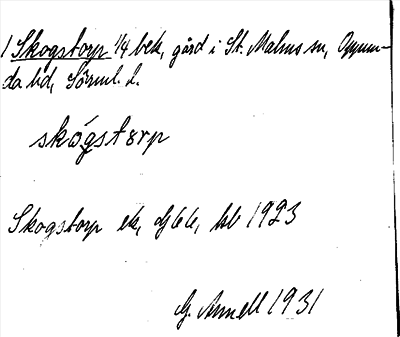 1 Skogstorp 1/4 bek, gård i St. Malms sn, Oppun-
da hd, Sörml. l.
skógstorp
Skogstorp ek, Gj 66, hb 1923
G. Annell 1931